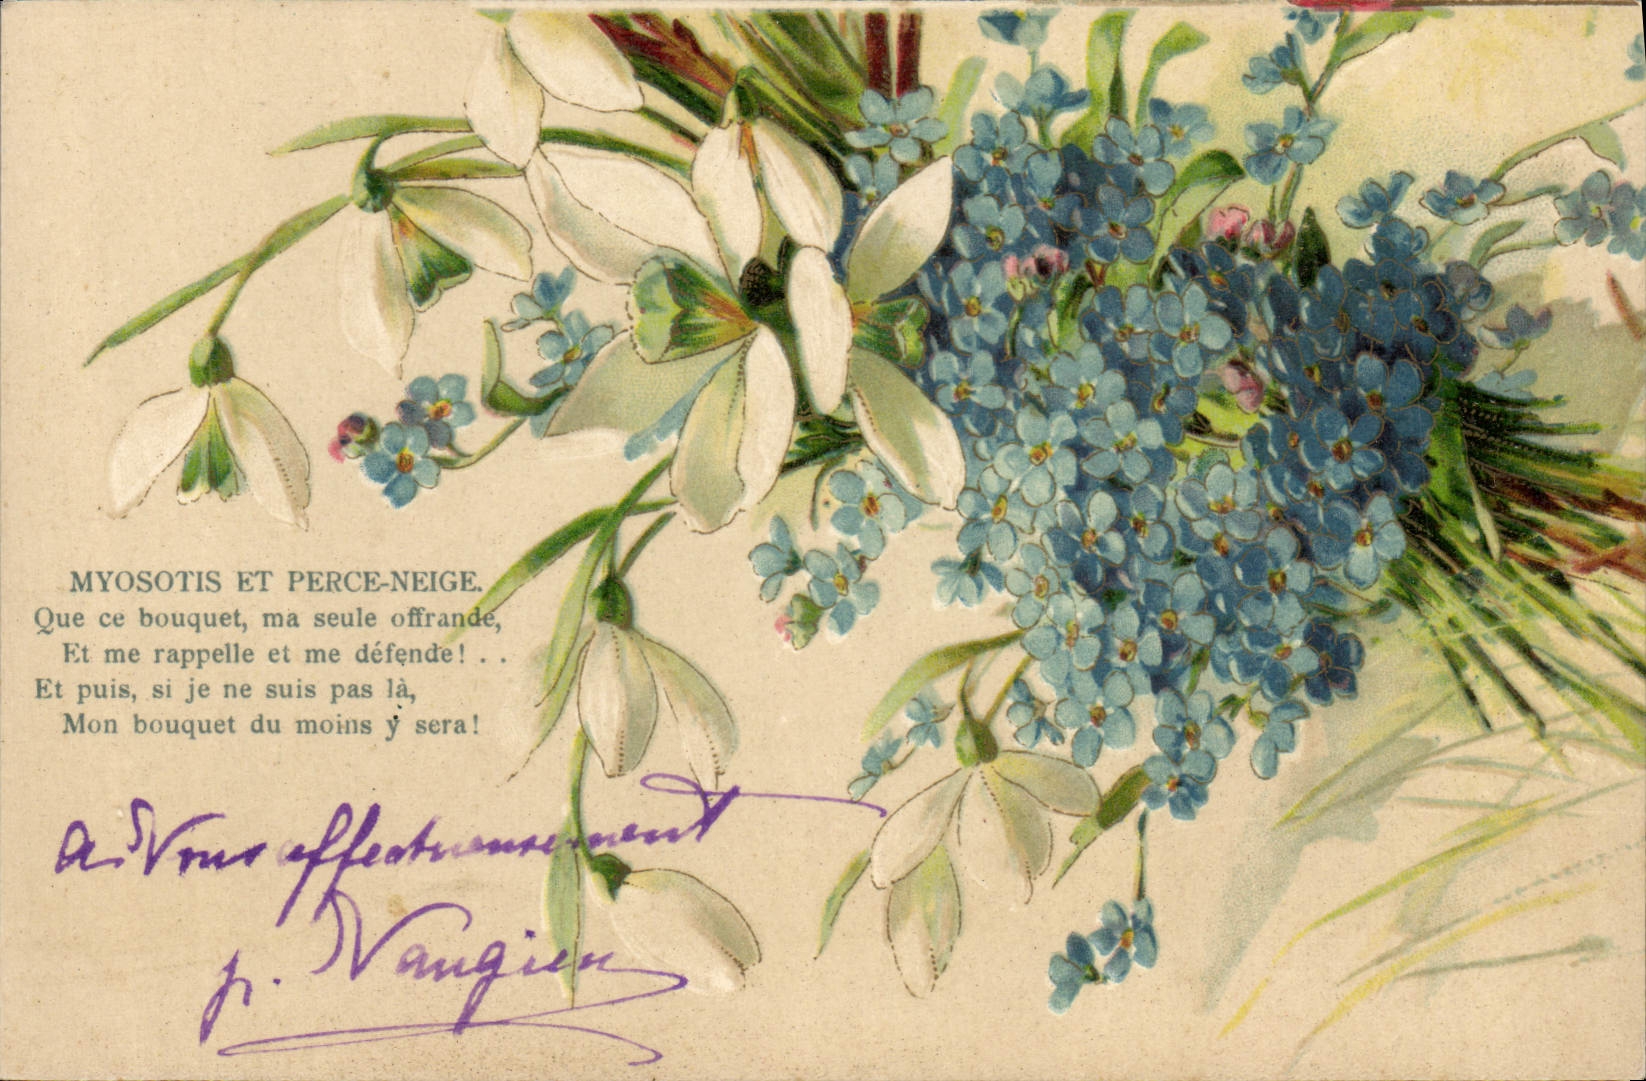 MYOSOTIS ET PERCE-NEIGE.
Que ce bouquet, ma seule offrande,
Et me rappelle et me défende! . .
Et puis, si je ne suis pas là,
Mon bouquet du moins y sera!
à Vous affectueusement
p. Vaugien